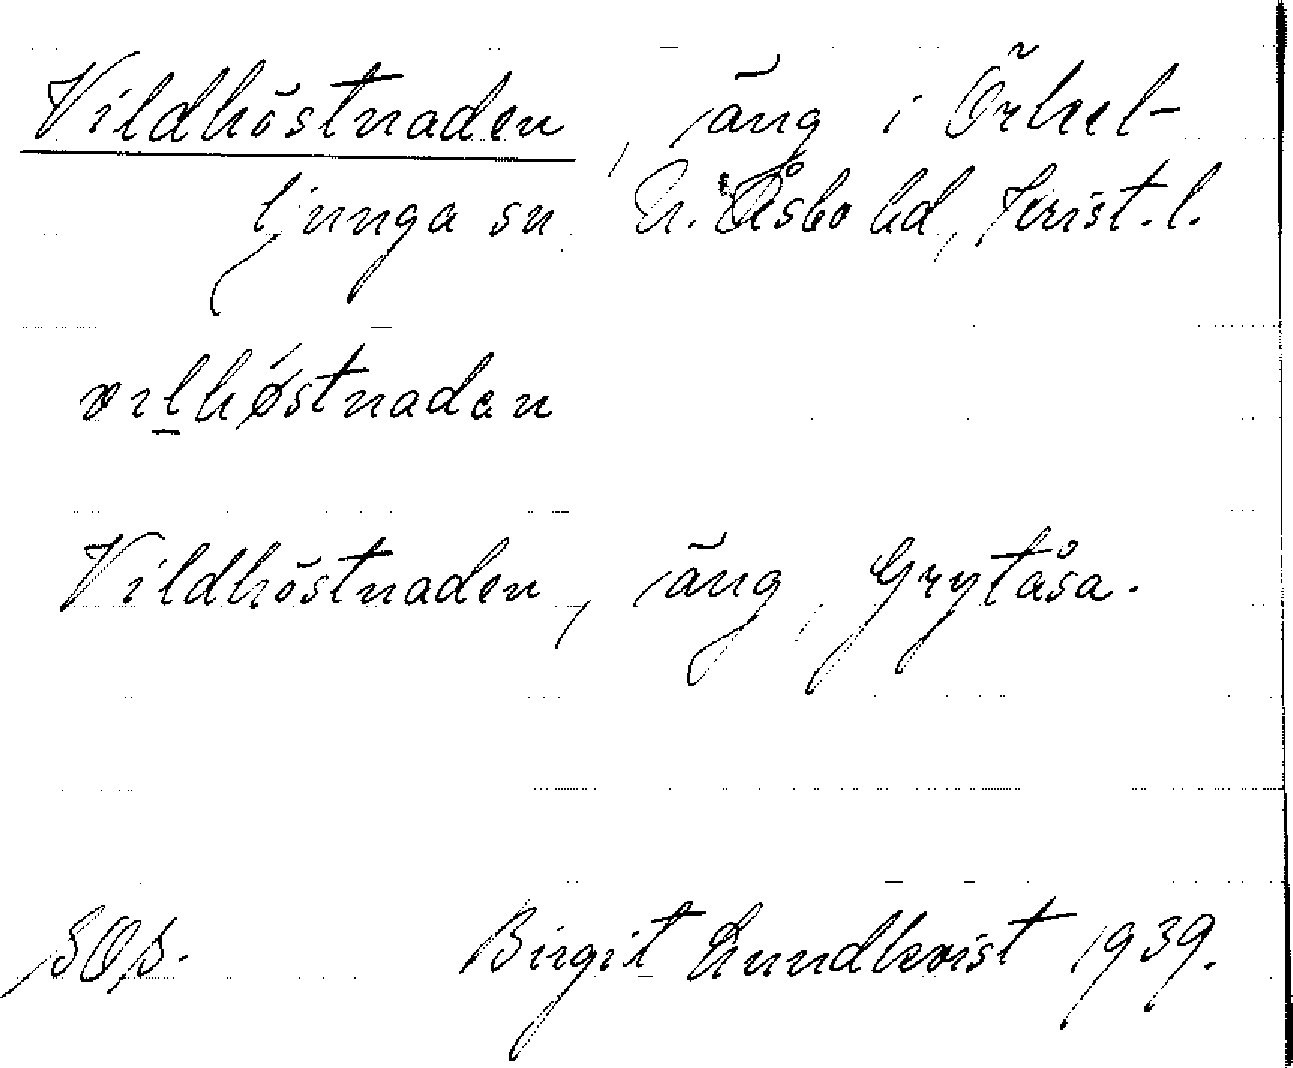 Vildhöstnaden, äng i Örkel-
ljunga sn. N. Åsbo hd, Krist. l.
vilhǿstnaden
Vildhöstnaden, äng, Grytåsa.
Birgit Lundkvist 1939.